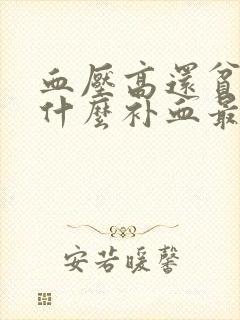 血壓高還貧
什麼补血最
安若暖馨